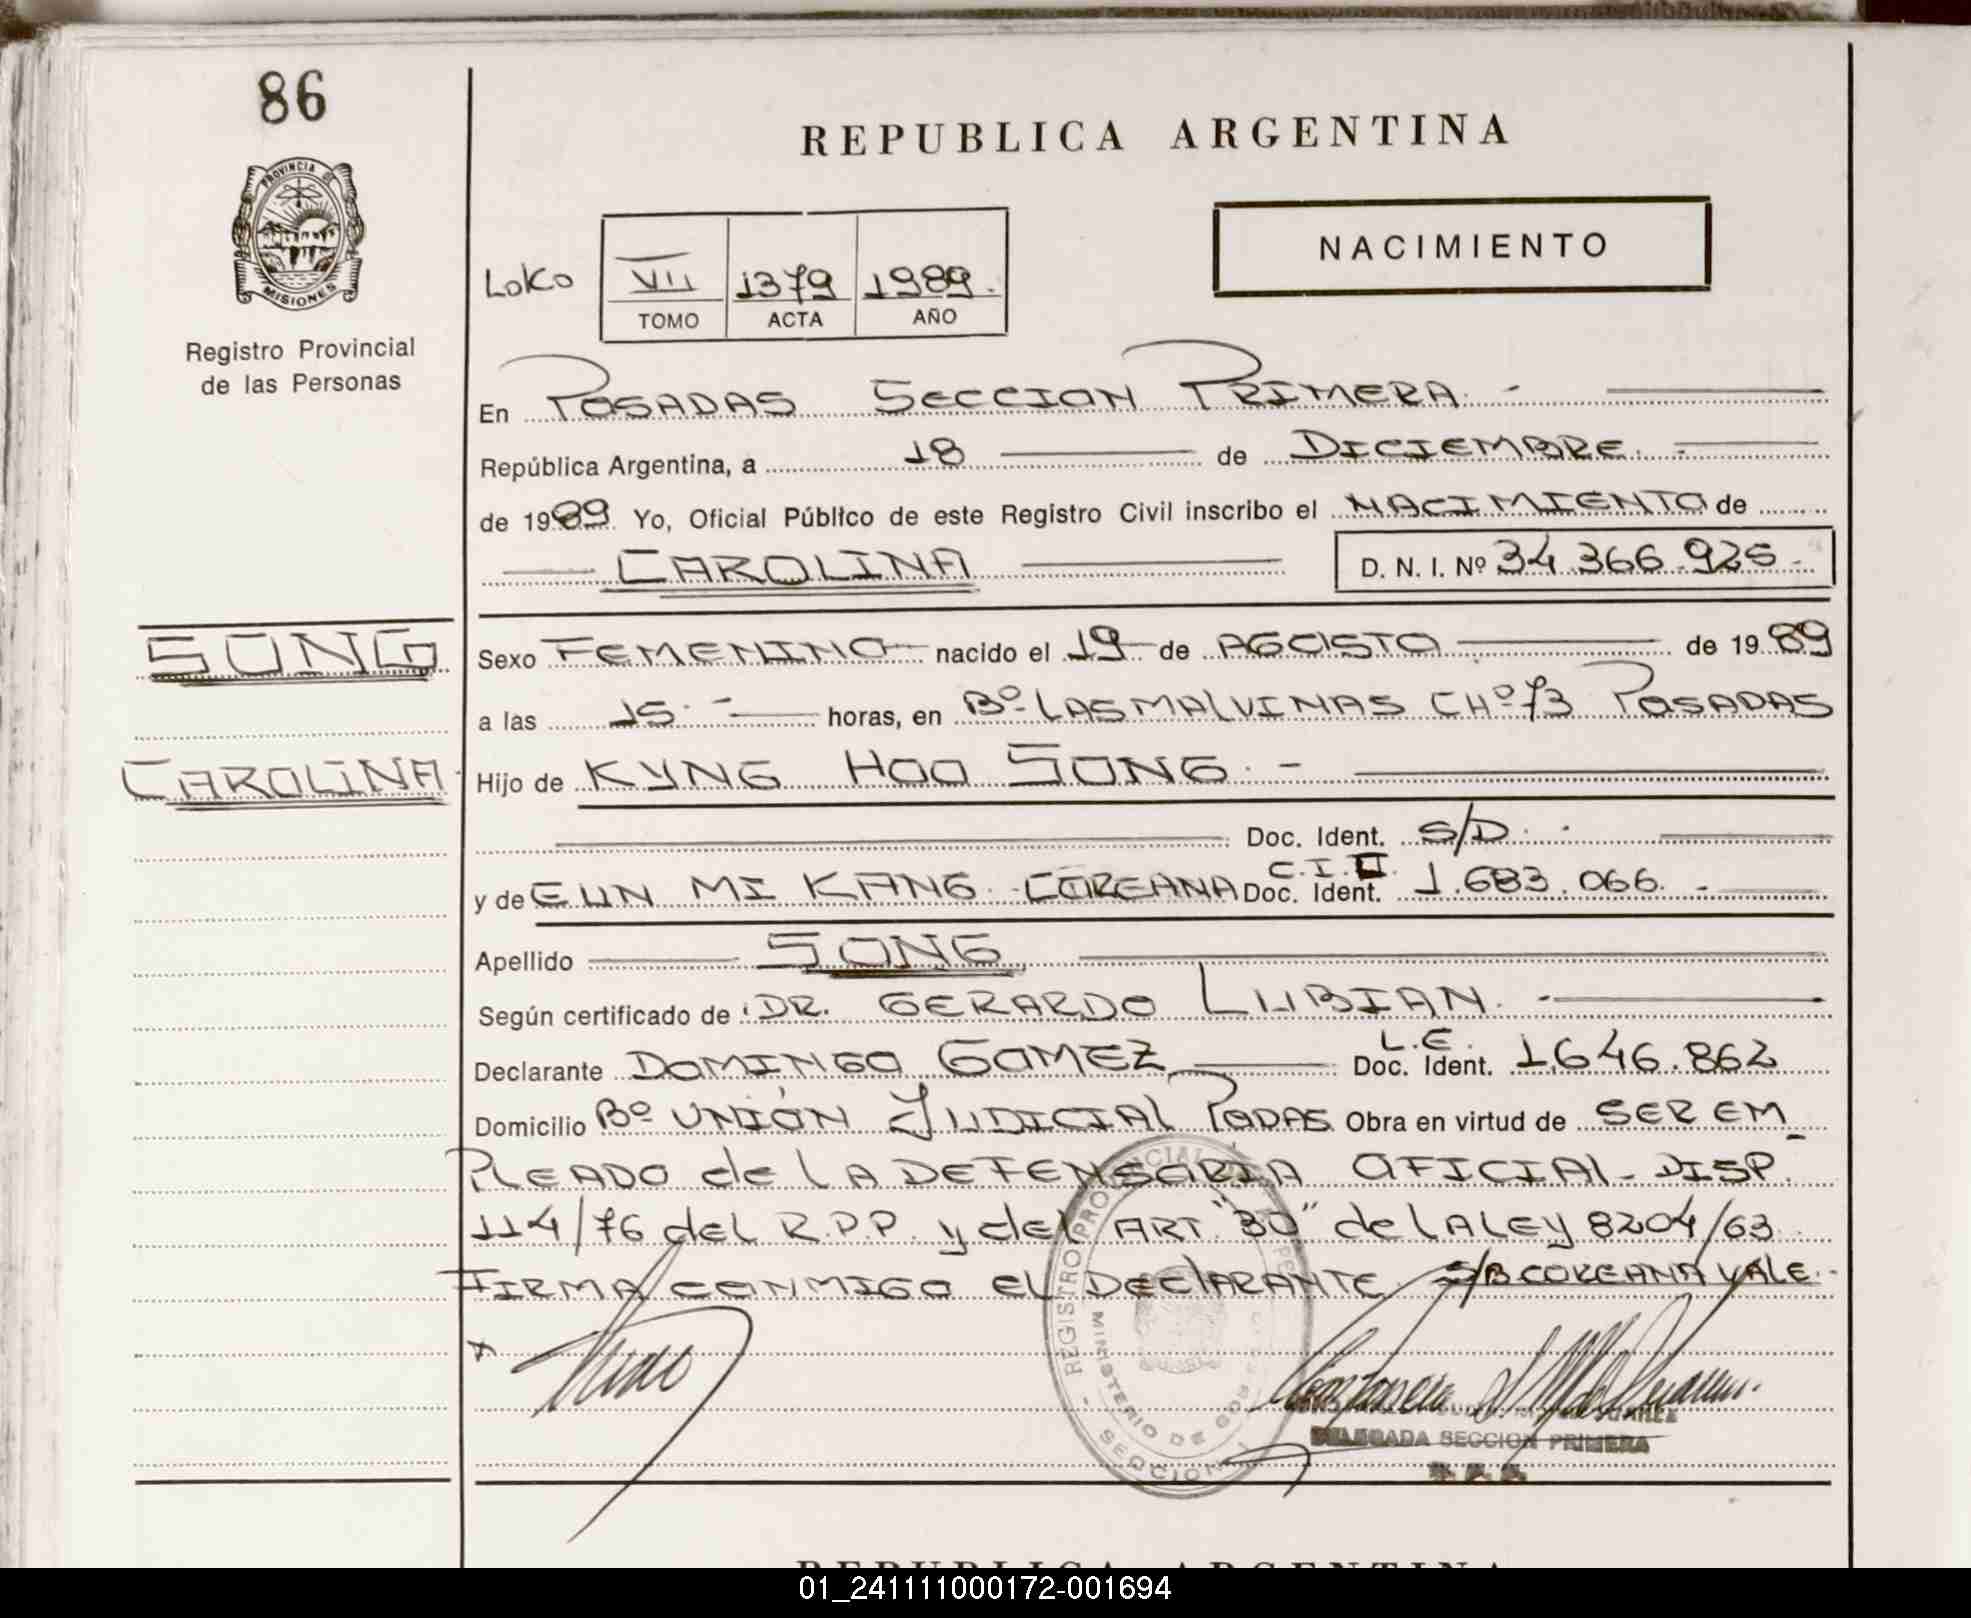 86
PROVINCIA DE
MISIONES
Registro Provincial
de las Personas
REPUBLICA ARGENTINA
NACIMIENTO
LoKo VII 1379 1989.
TOMO ACTA AÑO
En POSADAS SECCION PRIMERA. -
República Argentina, a 18 de DICIEMBRE. -
de 1989 Yo, Oficial Público de este Registro Civil inscribo el NACIMIENTO de
CAROLINA D. N. I. Nº 34.366.925.-
SONG
Sexo FEMENINO nacido el 19 de AGOSTO de 1989
a las 15. - horas, en Bº LAS MALVINAS CHº 73 POSADAS
CAROLINA
Hijo de KYNG HOO SONG. -
Doc. Ident. S/D. -
C.I.
y de EUN MI KANG COREANA Doc. Ident. 1.683.066. -
Apellido SONG
Según certificado de DR. GERARDO LUBIAN. -
L.E.
Declarante DOMINGO GOMEZ Doc. Ident. 1.646.862
Domicilio Bº UNIÓN JUDICIAL PODAS Obra en virtud de SER EM_
PLEADO de LA DEFENSORIA OFICIAL - DISP.
114/76 del R.P.P. y del ART. "30" de LA LEY 8204/63.
FIRMA CONMIGO EL DECLARANTE. S/B COREANA VALE.-
x
REGISTRO PROVINCIAL
MINISTERIO DE GOBIERNO
SECCION 1
DELEGADA SECCION PRIMERA
REPUBLICA ARGENTINA
01_241111000172-001694